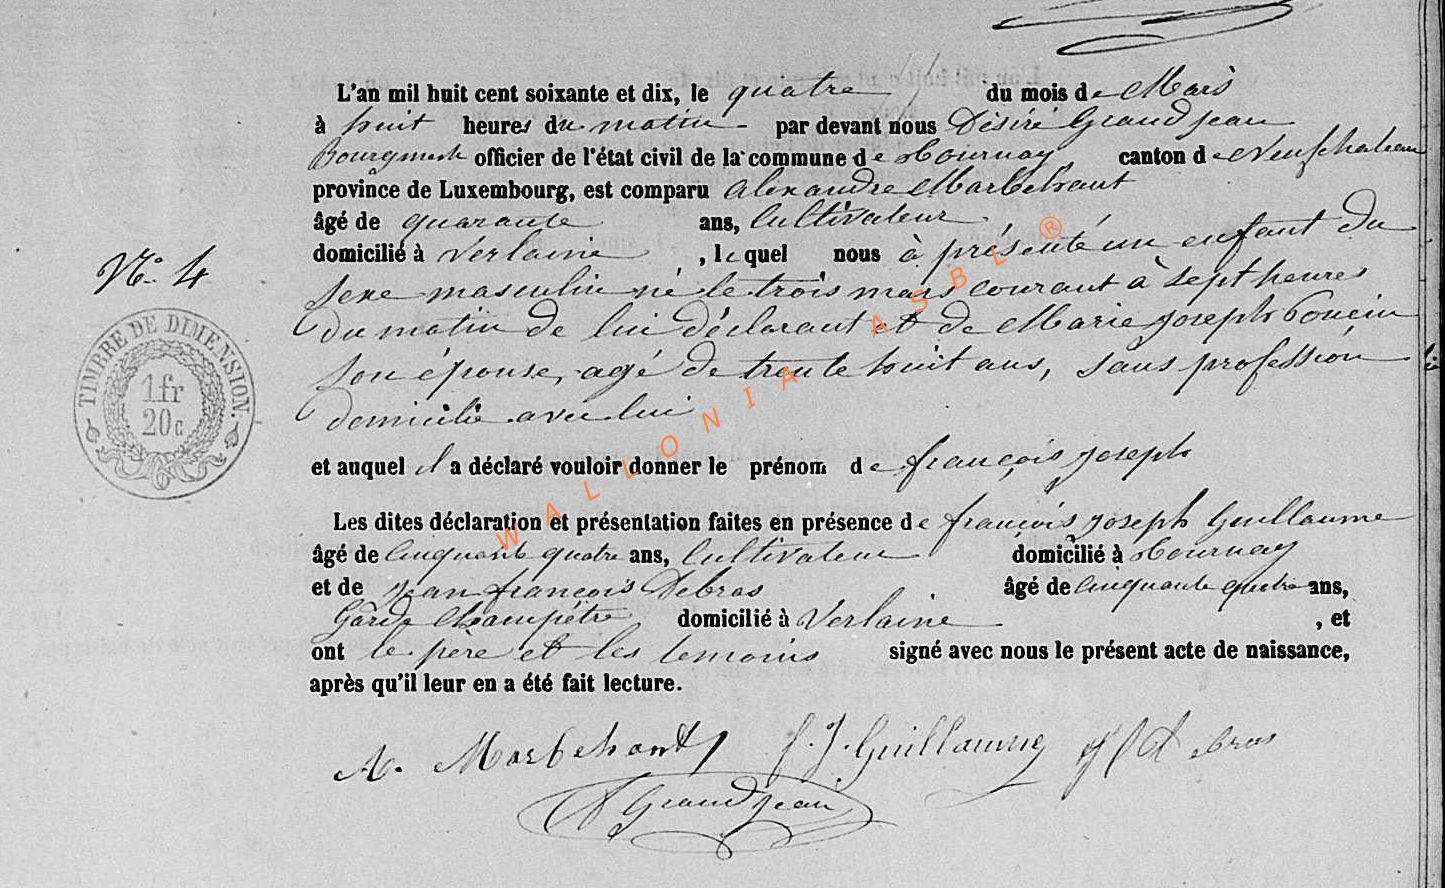 L'an mil huit cent soixante et dix, le quatre du mois de Mars
à huit heures du matin par devant nous Désiré Grandjean
Bourgmestre officier de l'état civil de la commune de Tournay, canton de Neufchateau
province de Luxembourg, est comparu Alexandre Marbehant
âgé de quarante ans, Cultivateur
domicilié à Verlaine, lequel nous à présenté un enfant du
sexe masculin né le trois mars courant à sept heures
du matin de lui déclarant et de Marie Joseph Poncin
N° 4
son épouse, agé de trente huit ans, sans profession
domicilié avec lui
TIMBRE DE DIMENSION.
1 fr
20 c
et auquel il a déclaré vouloir donner le prénom de françois joseph
Les dites déclaration et présentation faites en présence de françois joseph Guillaume
âgé de Cinquante quatre ans, Cultivateur domicilié à Tournay
et de jean françois Debras âgé de Cinquante quatre ans,
Garde Champêtre domicilié à Verlaine, et
ont le père et les temoins signé avec nous le présent acte de naissance,
après qu'il leur en a été fait lecture.
A. Marbehant f. J. Guillaume Debras
Grandjean
WALLONIA ASBL ®